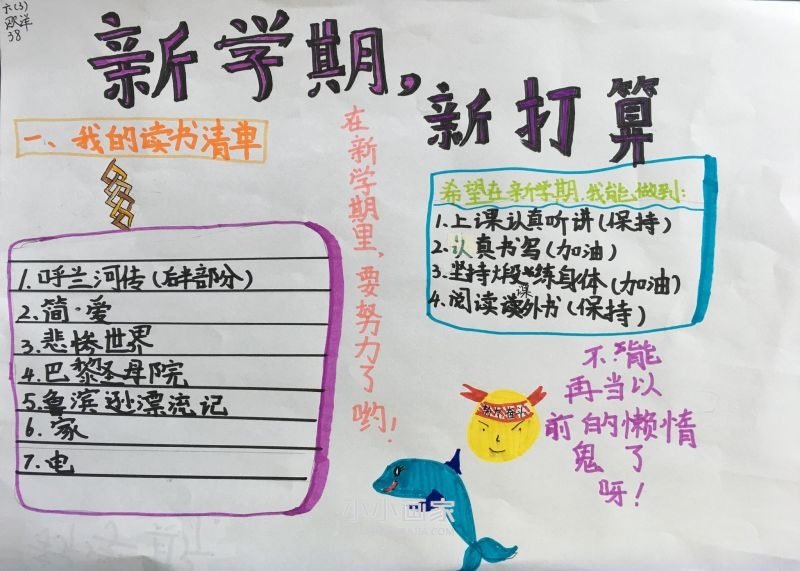 六(3)
38
新学期，
新打算
一、我的读书清单
1.呼兰河传(后半部分)
2.简·爱
3.悲惨世界
4.巴黎圣母院
5.鲁滨逊漂流记
6.家
7.电
在新学期里，要努力了哟！
希望在新学期，我能做到：
1.上课认真听讲(保持)
2.认真书写(加油)
3.坚持煅练身体(加油)
4.阅读课外书(保持)
不能
再当以
前的懒惰
鬼了
呀！
小小画家